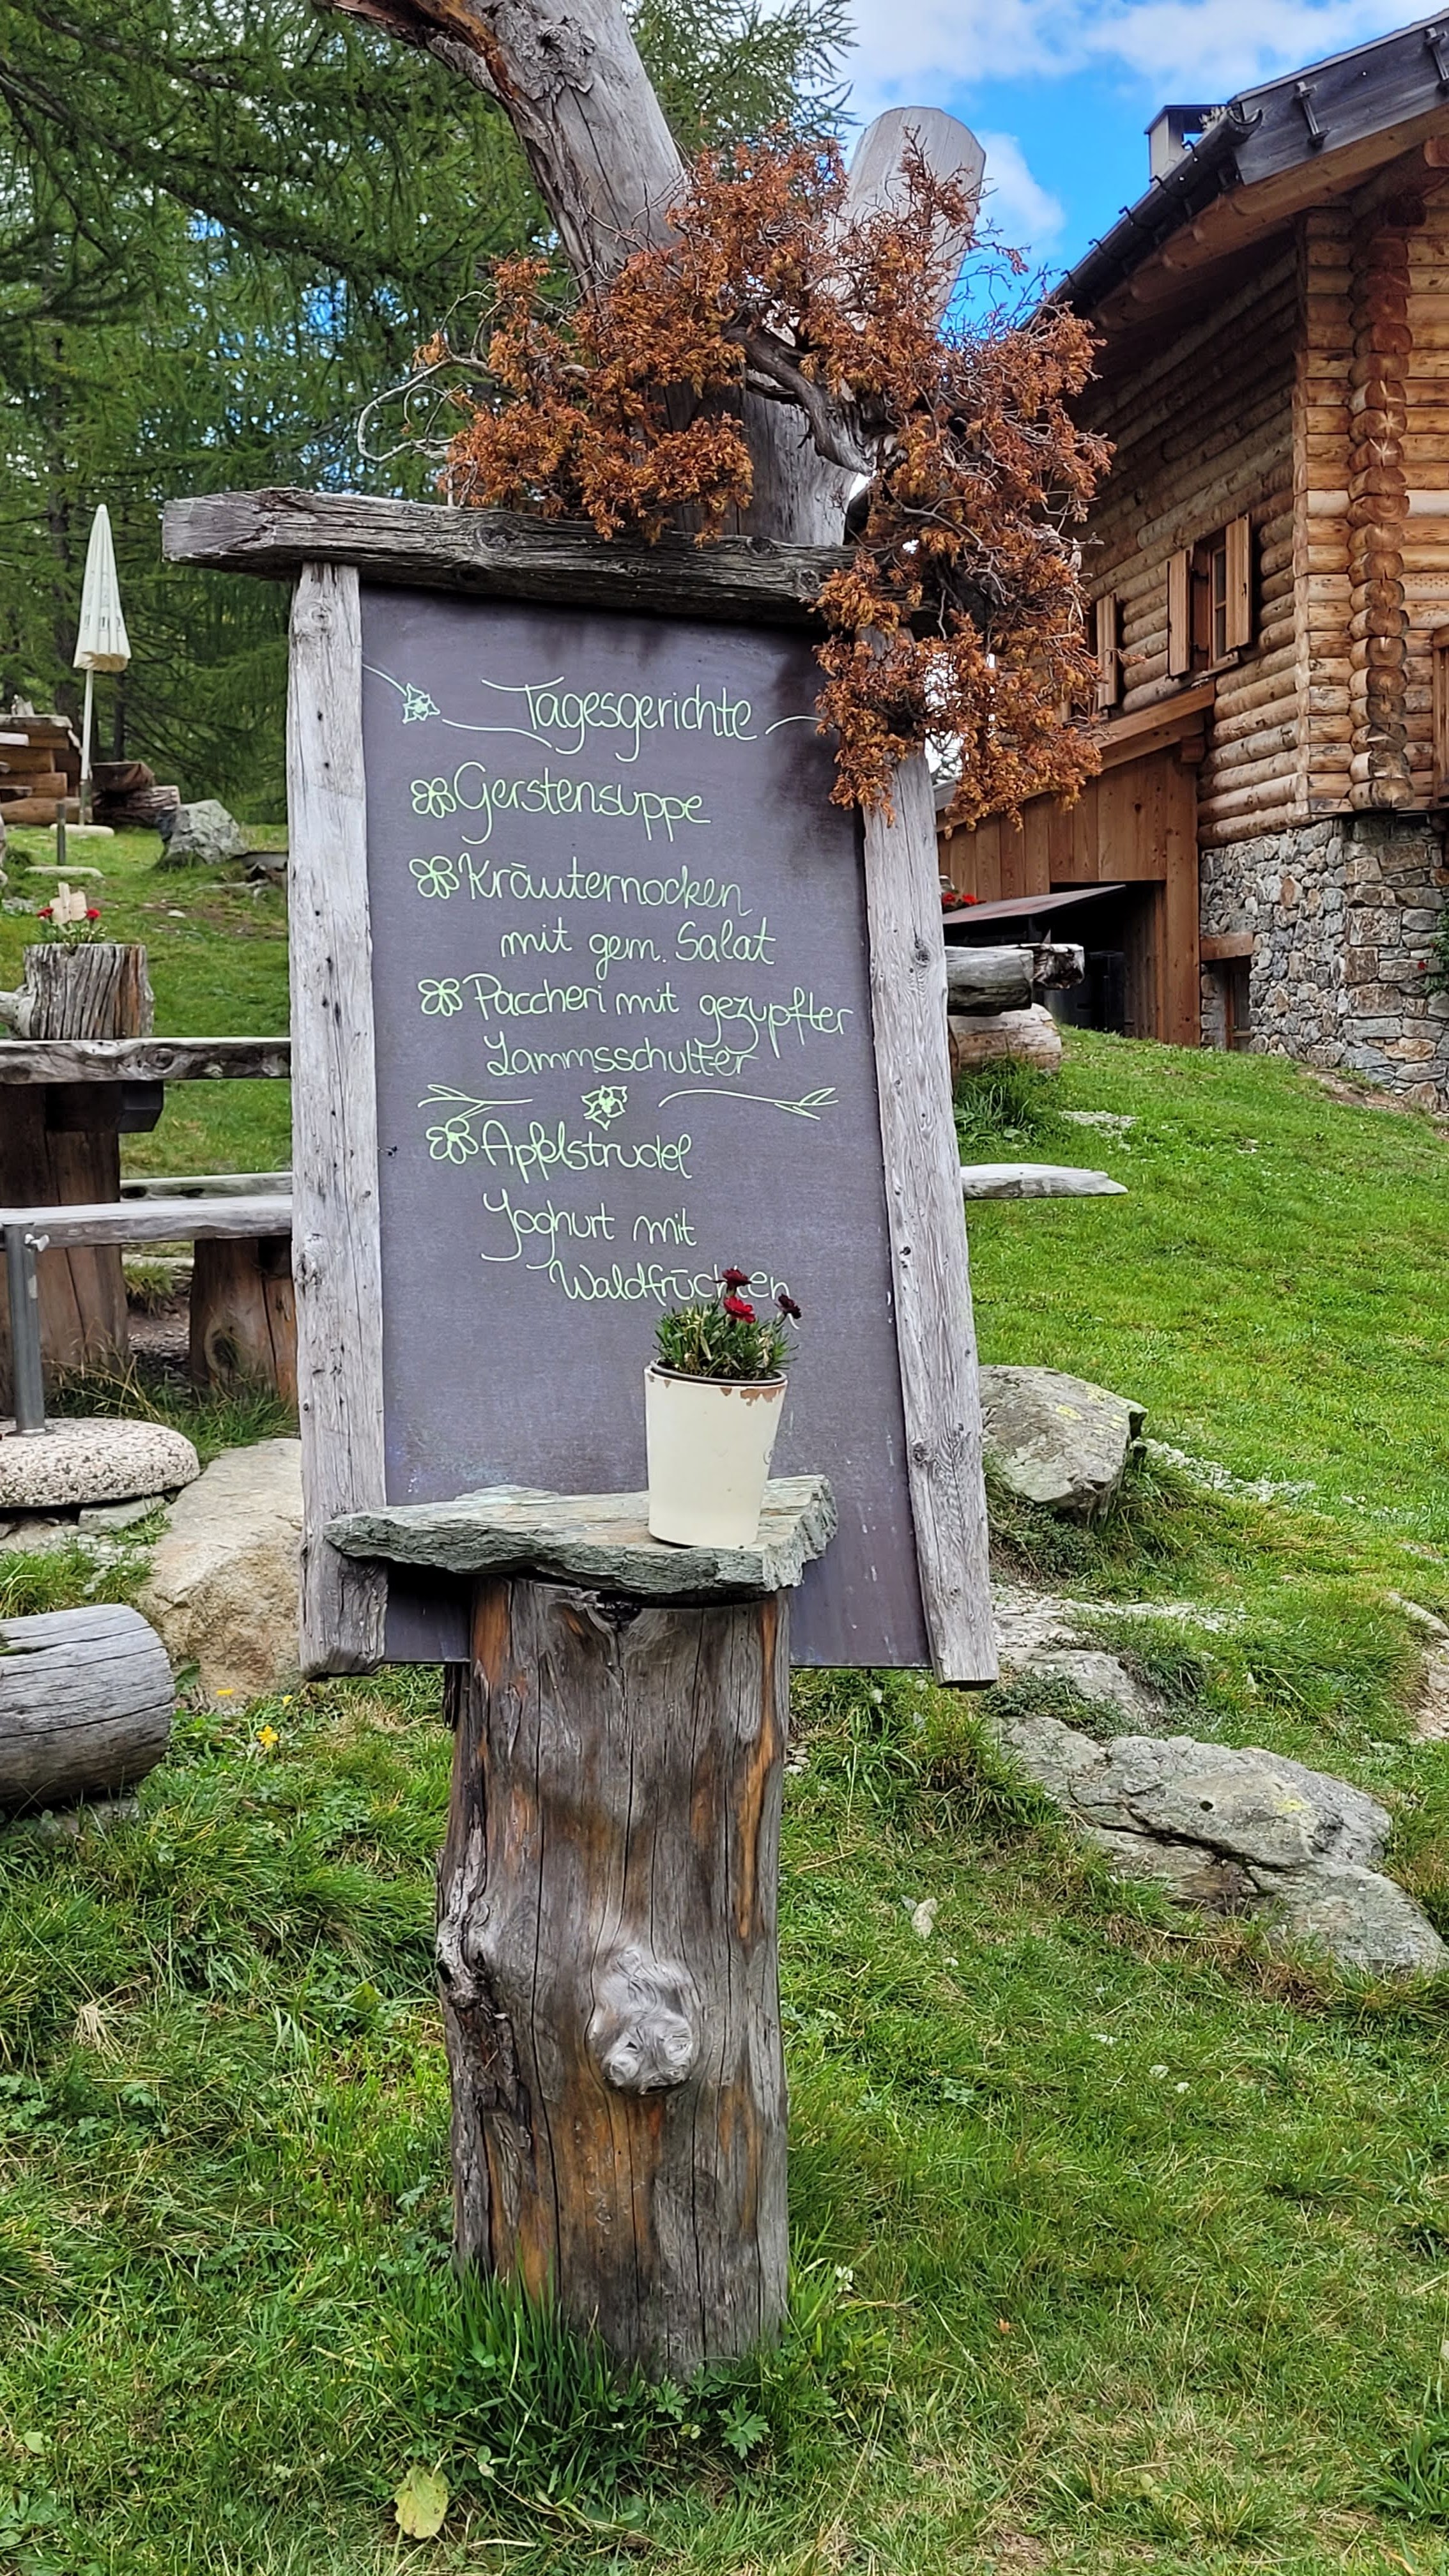 Tagesgerichte
Gerstensuppe
Kräuternocken
mit gem. Salat
Paccheri mit gezupfter
Lammsschulter
Apfelstrudel
Yoghurt mit
Waldfrüchten